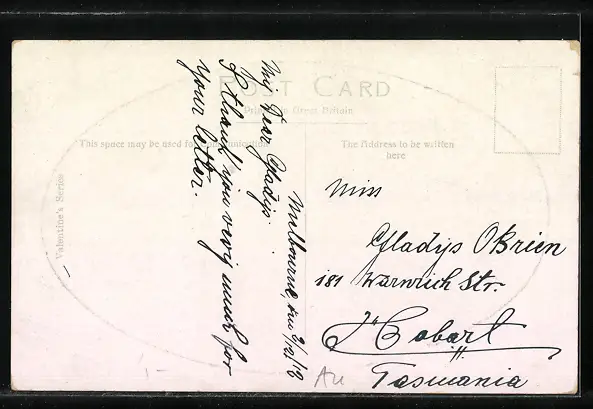 POST CARD
Printed in Great Britain
This space may be used for communication
The address to be written
here
Valentine's Series
Melbourne, 2/12/12
My Dear Gladys.
I thank you very much for
your letter.
Miss
Gladys O'Brien
181 Warwick Str.
Hobart
Tasmania
Au